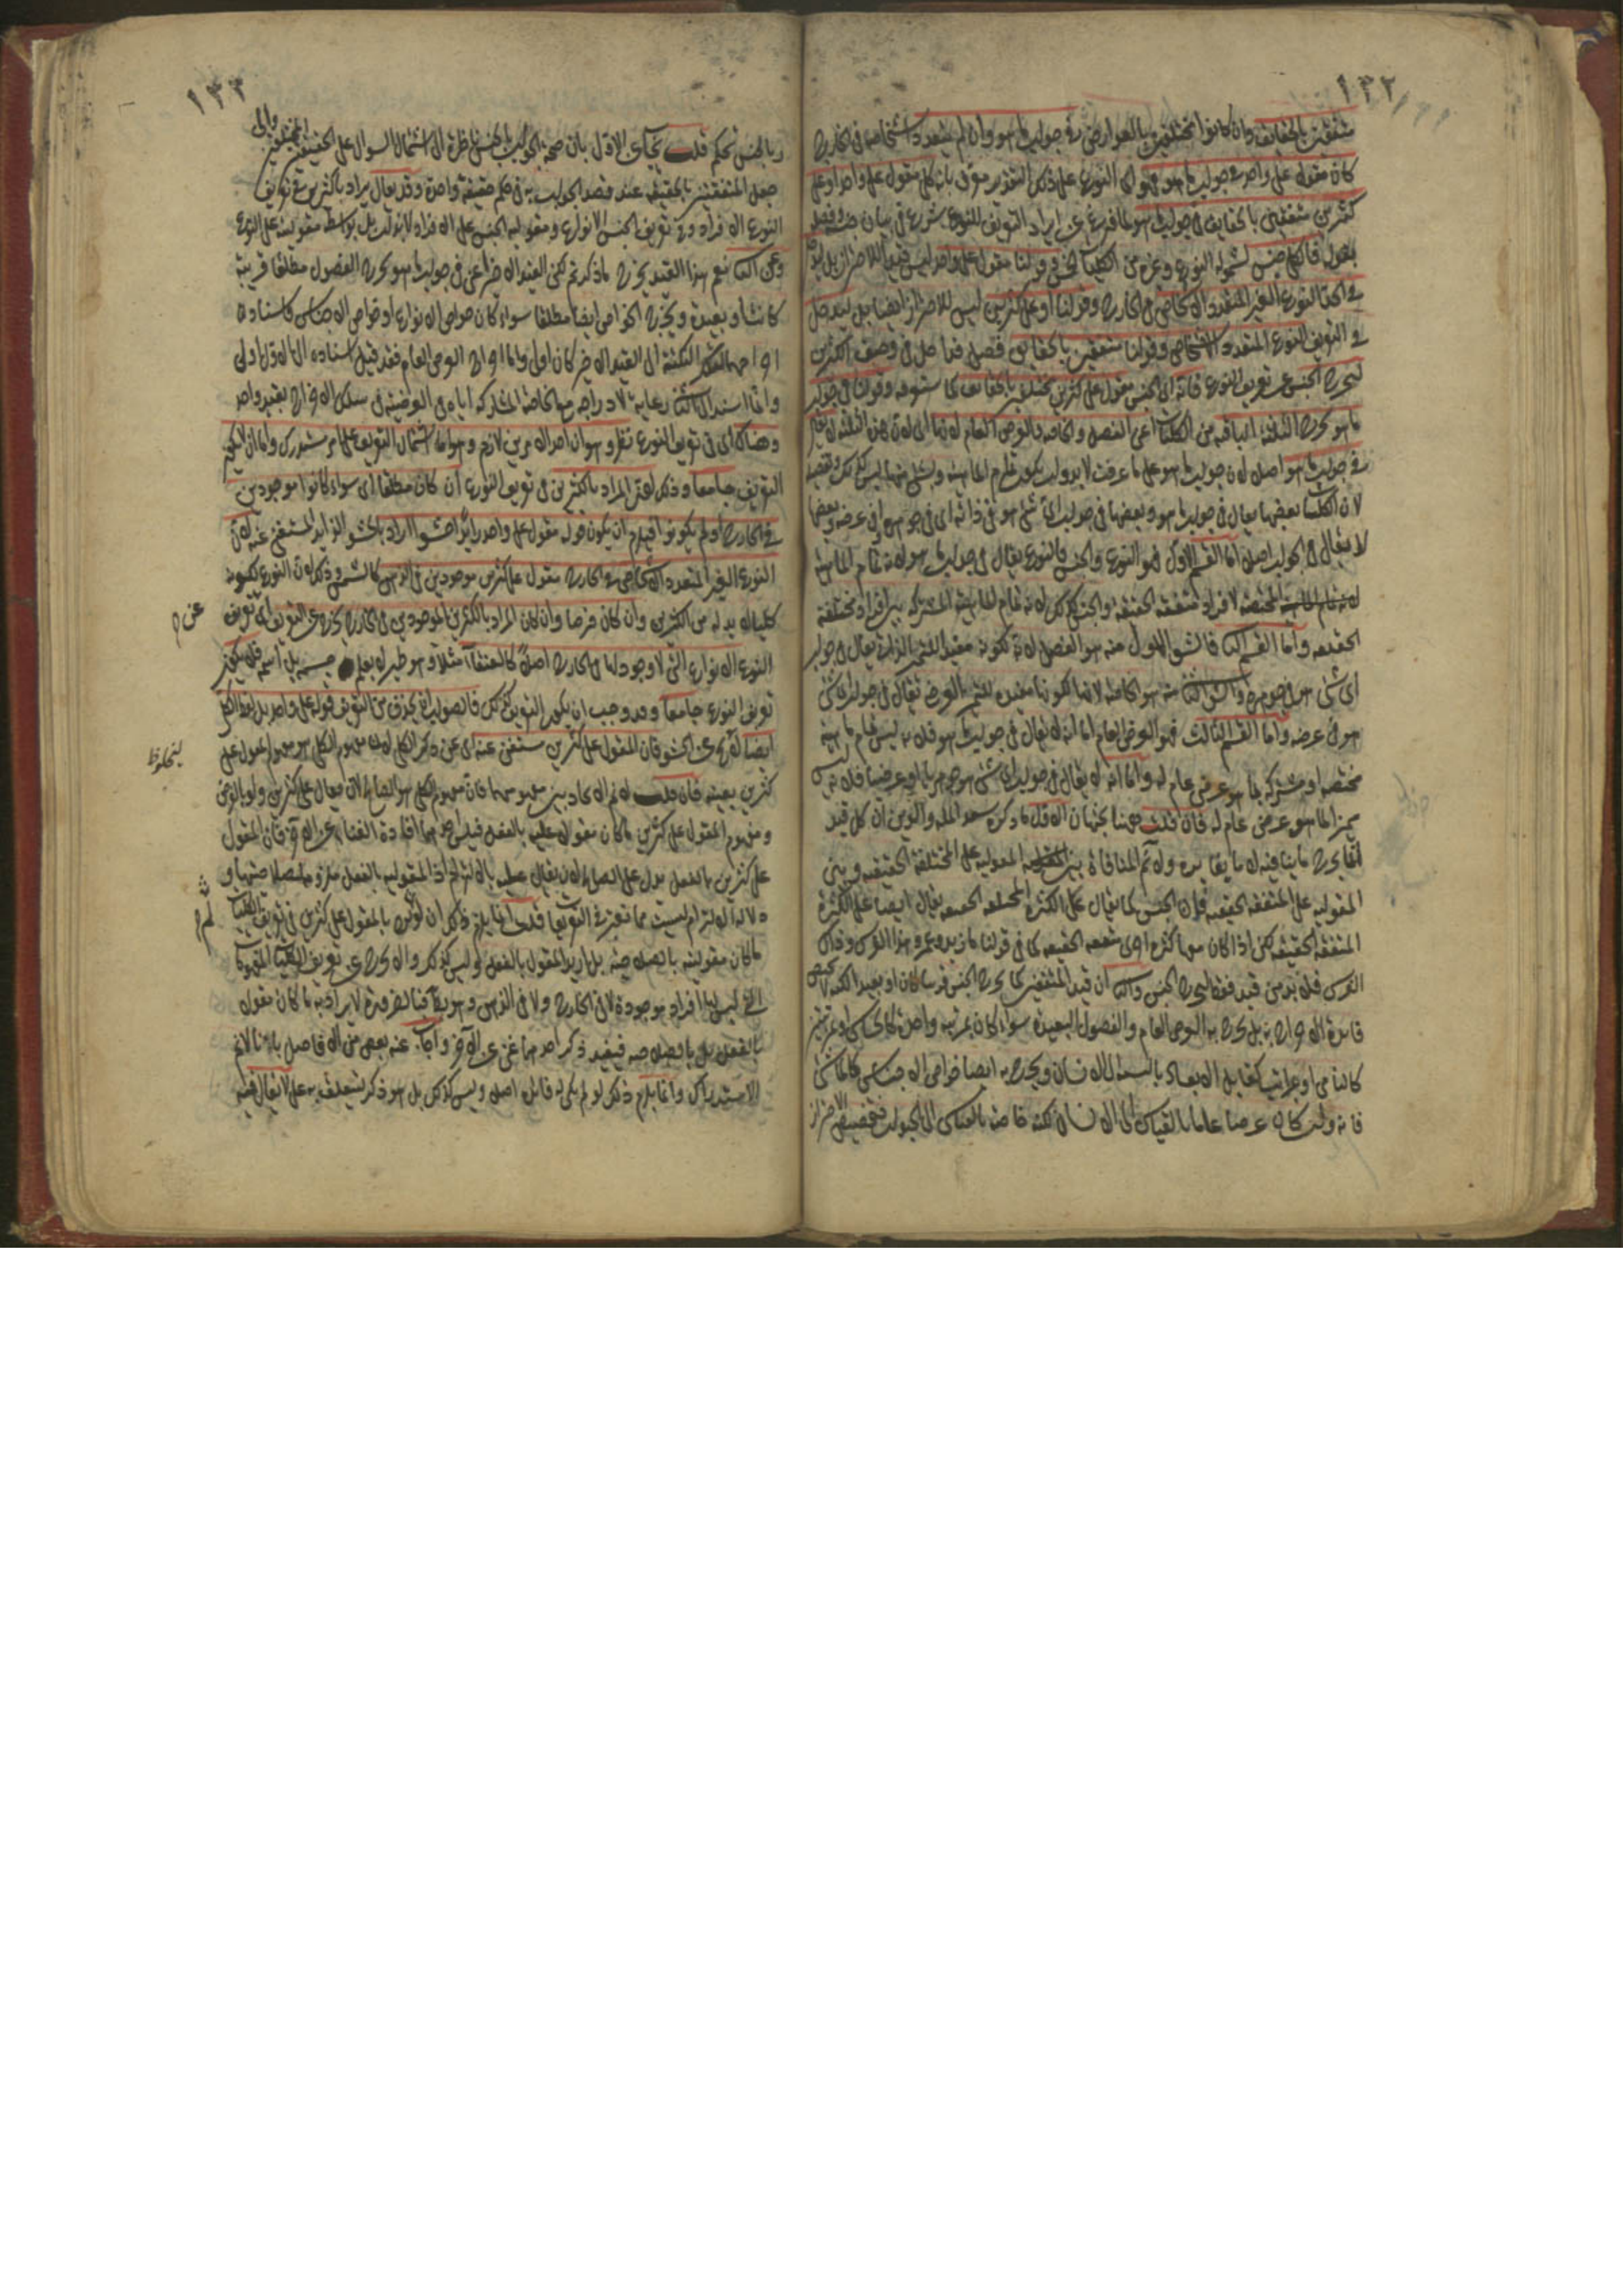 ١٣٢
متفقين بالحقائق وان كانوا مختلفين بالعوارض في جواب ما هو وان لم يتعدد اشخاصه في الخارج
كان مقولا على واحد في جواب ما هو فهو اى النوع على ذلك التقدير كلى مقول على واحد او على
كثيرين متفقين بالحقايق في جواب ما هو لما فرغ عن ايراد التعريف للنوع شرع في بيان جنسه وفصله
بقوله فالكلى جنس لشموله النوع وغيره من الكليات الخمس وقولنا مقول على واحد ليس قيدا للاحتراز بل ليدخل
في الحد النوع الغير المتعدد الاشخاص في الخارج وقولنا او على كثيرين ليس للاحتراز ايضا بل ليدخل
في التعريف النوع المتعدد الاشخاص وقولنا متفقين بالحقايق فصل داخل في وصف الكثيرين
ليخرج الجنس عن تعريف النوع فانه اى الجنس مقول على كثيرين مختلفين بالحقايق كما ستعرفه وقولنا في جواب
ما هو يخرج الثلاثة الباقية من الكليات اعنى الفصل والخاصة والعرض العام لانها اى لان هذه الثلثة لا يقال
في جواب ما هو اصلا لان جواب ما هو على ما عرفت لا بد وان يكون تمام الماهية وشئ منها ليس كذلك وتفصيله
لان الكليات بعضها يقال في جواب ما هو وبعضها في جواب اى شئ هو في ذاته اى في جوهره او في عرضه وبعضها
لا يقال في الجواب اصلا اما القسم الاول فهو النوع والجنس فالنوع يقال في جواب ما هو لانه تمام الماهية
المختصة لافراد متفقة الحقيقة والجنس كذلك لانه تمام الماهية المشتركة بين افراد مختلفة
الحقيقة واما القسم الثاني فالشق الاول منه هو الفصل لانه لكونه مفيدا للتميز الذاتى يقال في جواب
اى شئ هو في جوهره والشق الثانى منه هو الخاصة لانها لكونها مفيدة للتميز العرضى تقال في جواب اى شئ
هو في عرضه واما القسم الثالث فهو العرض العام اما انه لا يقال في جواب ما هو فلانه ليس تمام ماهية
مختصة او مشتركة لما هو عرض عام له واما انه لا يقال في جواب اى شئ هو جوهريا او عرضيا فلانه ليس
مميزا لما هو عرض عام له فان قلت ههنا بحثان الاول ما ذكره سعد الملة والدين ان كل قيد
انما يخرج ما ينافيه لا ما يغايره ولا تم المنافاة بين المقولية على المختلفة الحقيقة وبين
المقولية على المتفقة الحقيقة فان الجنس كما يقال على الكثرة المختلفة الحقيقة يقال ايضا على الكثرة
المتفقة الحقيقة لكن اذا كان معها كثرة اخرى متفقة الحقيقة كما في قولنا ما زيد وعمرو وهذا الفرس وذاك
الفرس فلا بد من قيد فقط ليخرج الجنس والثانى ان قيد المتفقين كما يخرج الجنس قريبا كان او بعيدا لكنه لا تخصيص
فائدة الاخراج به بل يخرج به العرض العام والفصول البعيدة سواء كان بمرتبة واحدة كالحساس او بمرتبتين
كالنامى او بمراتب كقابل الابعاد بالنسبة الى الانسان ويخرج به ايضا خواص الاجناس كالماشى
فانه وان كان عرضا عاما بالقياس الى الانسان لكنه خاصة بالقياس الى الحيوان فتخصيص الاحتراز
١٣٣
به الجنس تحكم قلت يجاب عن الاول بان صحة الجواب بالجنس ناظرة الى اشتمال السؤال على الحقيقتين المختلفتين والى
جعل المتفقتين بالحقيقة عند قصد الجواب به في حكم حقيقة واحدة وقد يقال يراد بالكثيرين في تعريف
النوع الافراد وفي تعريف الجنس الانواع ومقولية الجنس على الافراد لا بالذات بل بواسطة مقوليته على النوع
وعن الثاني نعم هذا القيد يخرج ما ذكرتم لكن القيد الاخير اعنى في جواب ما هو يخرج الفصول مطلقا قريبة
كانت او بعيدة ويخرج الخواص ايضا مطلقا سواء كان خواص الانواع او خواص الاجناس فاسناد
اخراج هذه الثلثة الى القيد الاخير كان اولى واما اخراج العرض العام فقد قيل اسناده الى الاول اولى
وانما اسند الى الثاني رعاية لادراجه مع الخاصة المشاركة اياه في العرضية في سلك الاخراج بقيد واحد
وهناك اى في تعريف النوع نظر وهو ان احد الامرين لازم وهو اما اشتمال التعريف على امر مستدرك واما ان لا يكون
التعريف جامعا وذلك لان المراد بالكثيرين في تعريف النوع ان كان مطلقا اى سواء كانوا موجودين
في الخارج او لم يكونوا فيلزم ان يكون قوله مقول على واحد زايدا حشوا اراد بالحشو الزايد المستغنى عنه لان
النوع الغير المتعدد الاشخاص في الخارج مقول على كثيرين موجودين في الذهن كالشمس وذلك لان النوع لكونه
كليا لا بد له من الكثيرين وان كان فرضا وان كان المراد بالكثيرين الموجودين في الخارج يخرج عن التعريف اى تعريف
النوع الانواع التى لا وجود لها في الخارج اصلا كالعنقاء مثلا وهو طير لا يعلم جسمه بل اسمه فلا يكون
تعريف النوع جامعا وقد وجب ان يكون التعريف كذلك فالصواب ان يحذف من التعريف قوله على واحد بل لفظ الكلى
ايضا لانه يجرى الحشو فان المقول على كثيرين مستغنى عنه اى عن ذكر الكلى لان مفهوم الكلى هو مفهوم المقول على
كثيرين بعينه فان قلت لا نم الاتحاد بين مفهوميهما فان مفهوم الكلى هو الصالح لان يقال على كثيرين ولو بالفرض
ومفهوم المقول على كثيرين ما كان مقولا عليه بالفعل فليس احدهما افادة الغناء عن الآخر فان المقول
على كثيرين بالفعل يدل على الصالح لان يقال عليه بالالتزام اذ المقولية بالفعل ملزومة لصلاحيتها و
دلالة الالتزام ليست مما تعتبر في التعريفات قلت انما يلزم ذلك ان لو اريد بالمقول على كثيرين في تعريف الكليات
ما كان مقوليته بالصلاحية بل اريد المقول بالفعل وليس كذلك والا يخرج عن تعريف الكليات المفهومات
التى ليس لها افراد موجودة لا في الخارج ولا في الذهن
بالفعل بل بالصلاحية فيفيد ذكر احدهما غنى عن الآخر واجاب عنه بعض من الافاضل بانا لا نم
الاستدراك وانما يلزم ذلك لو لم يكن له فائدة اصلا وليس كذلك بل هو ذكر ليتعلق به على لا يقال فيه
عن
لم